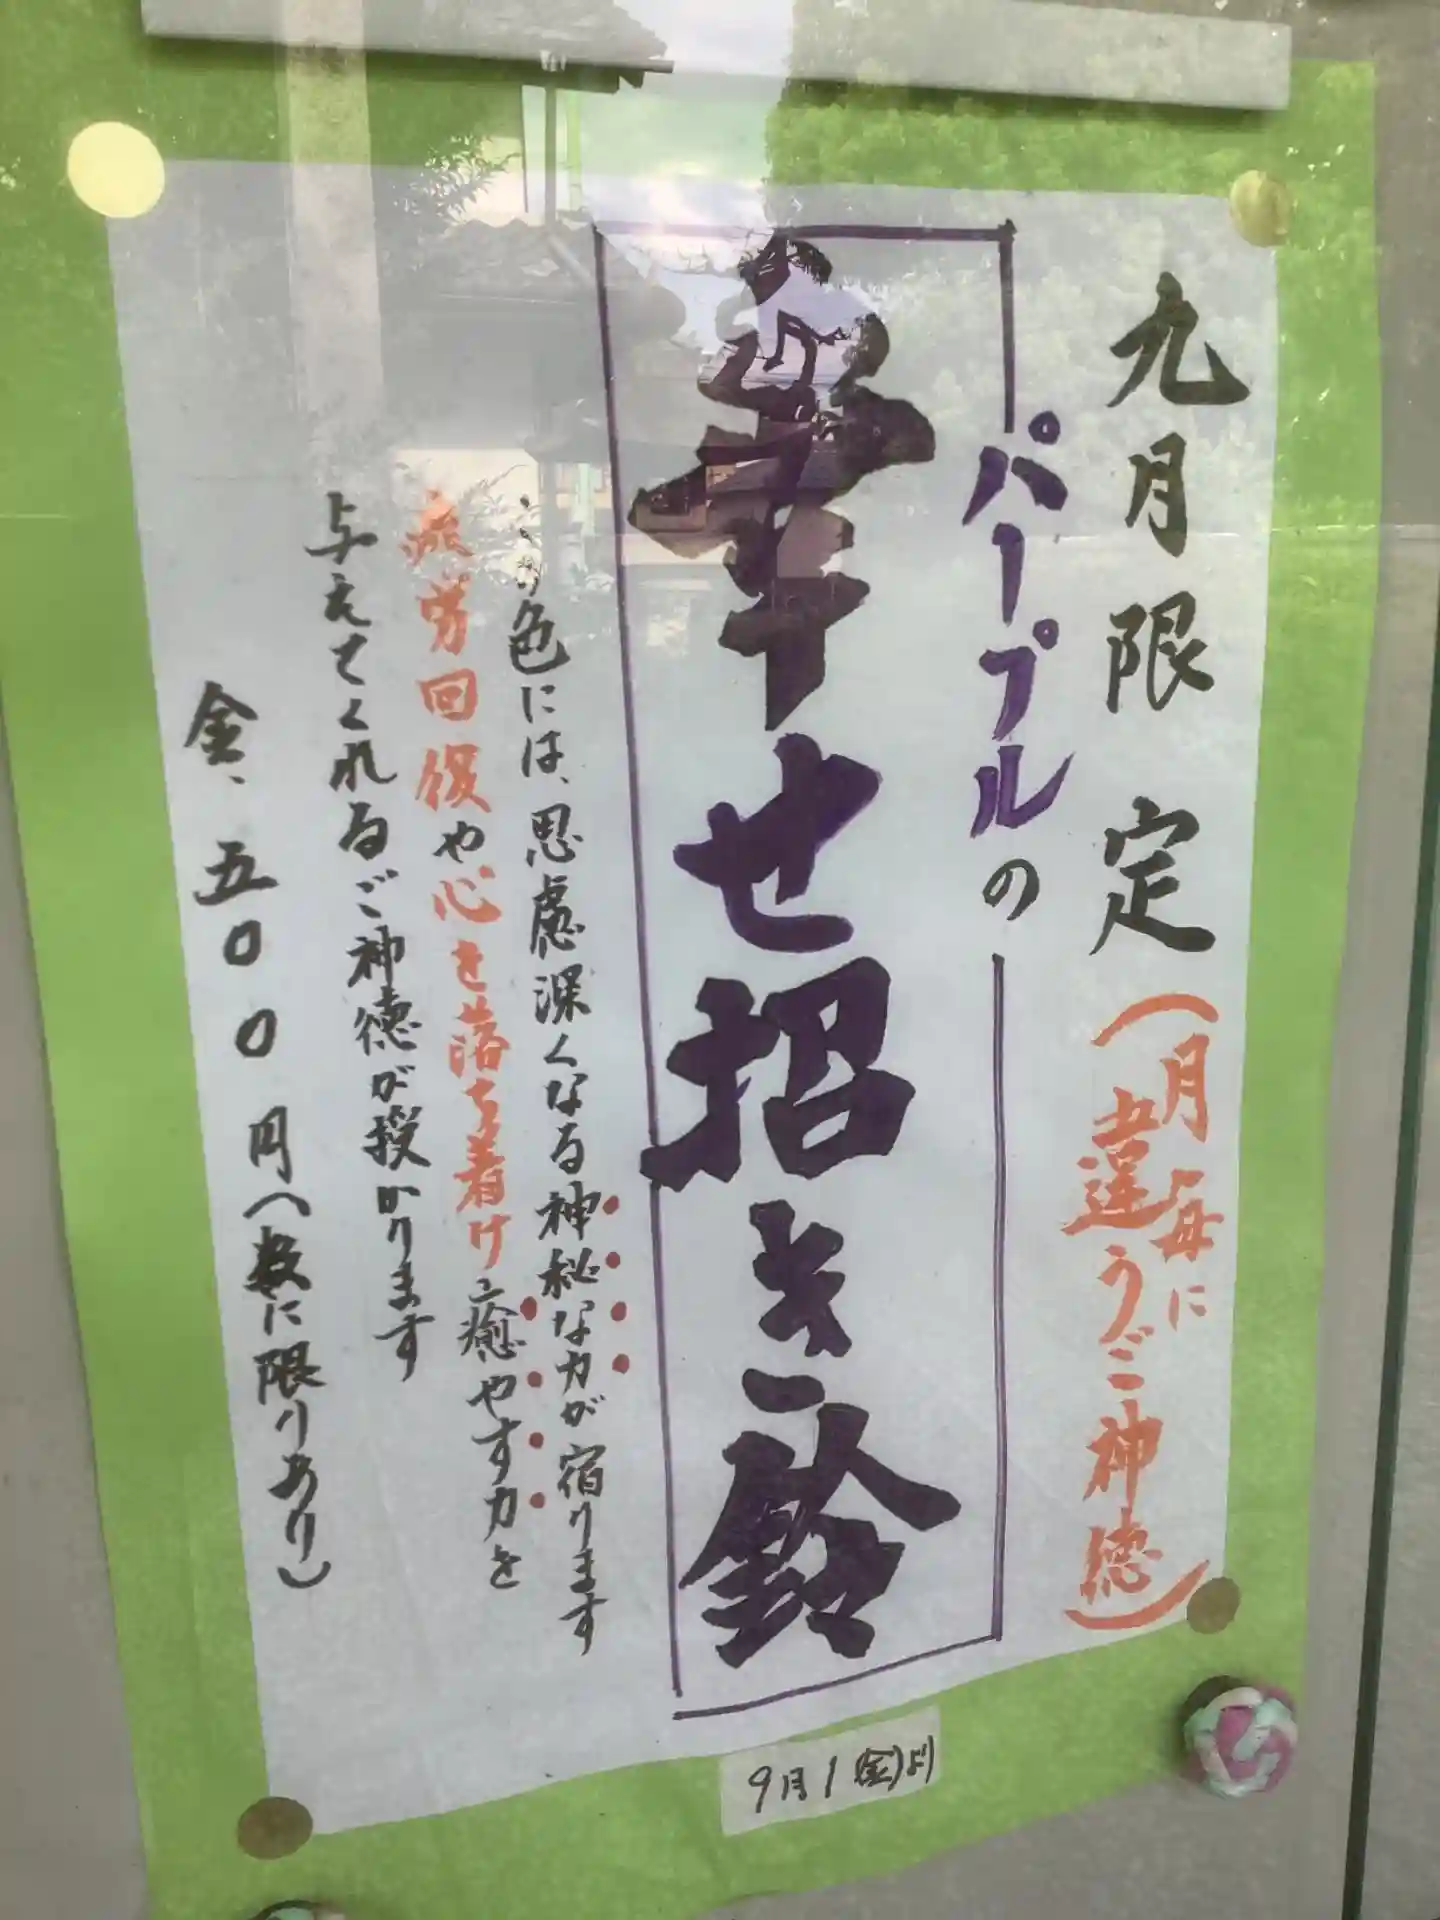 九月限定（月毎に
違うご神徳）
パープルの
幸せ招き鈴
この色には、思慮深くなる神秘な力が宿ります
疲労回復や心を落ち着け癒やす力を
与えてくれるご神徳が授かります
金、五〇〇円（数に限りあり）
9月1(金)より